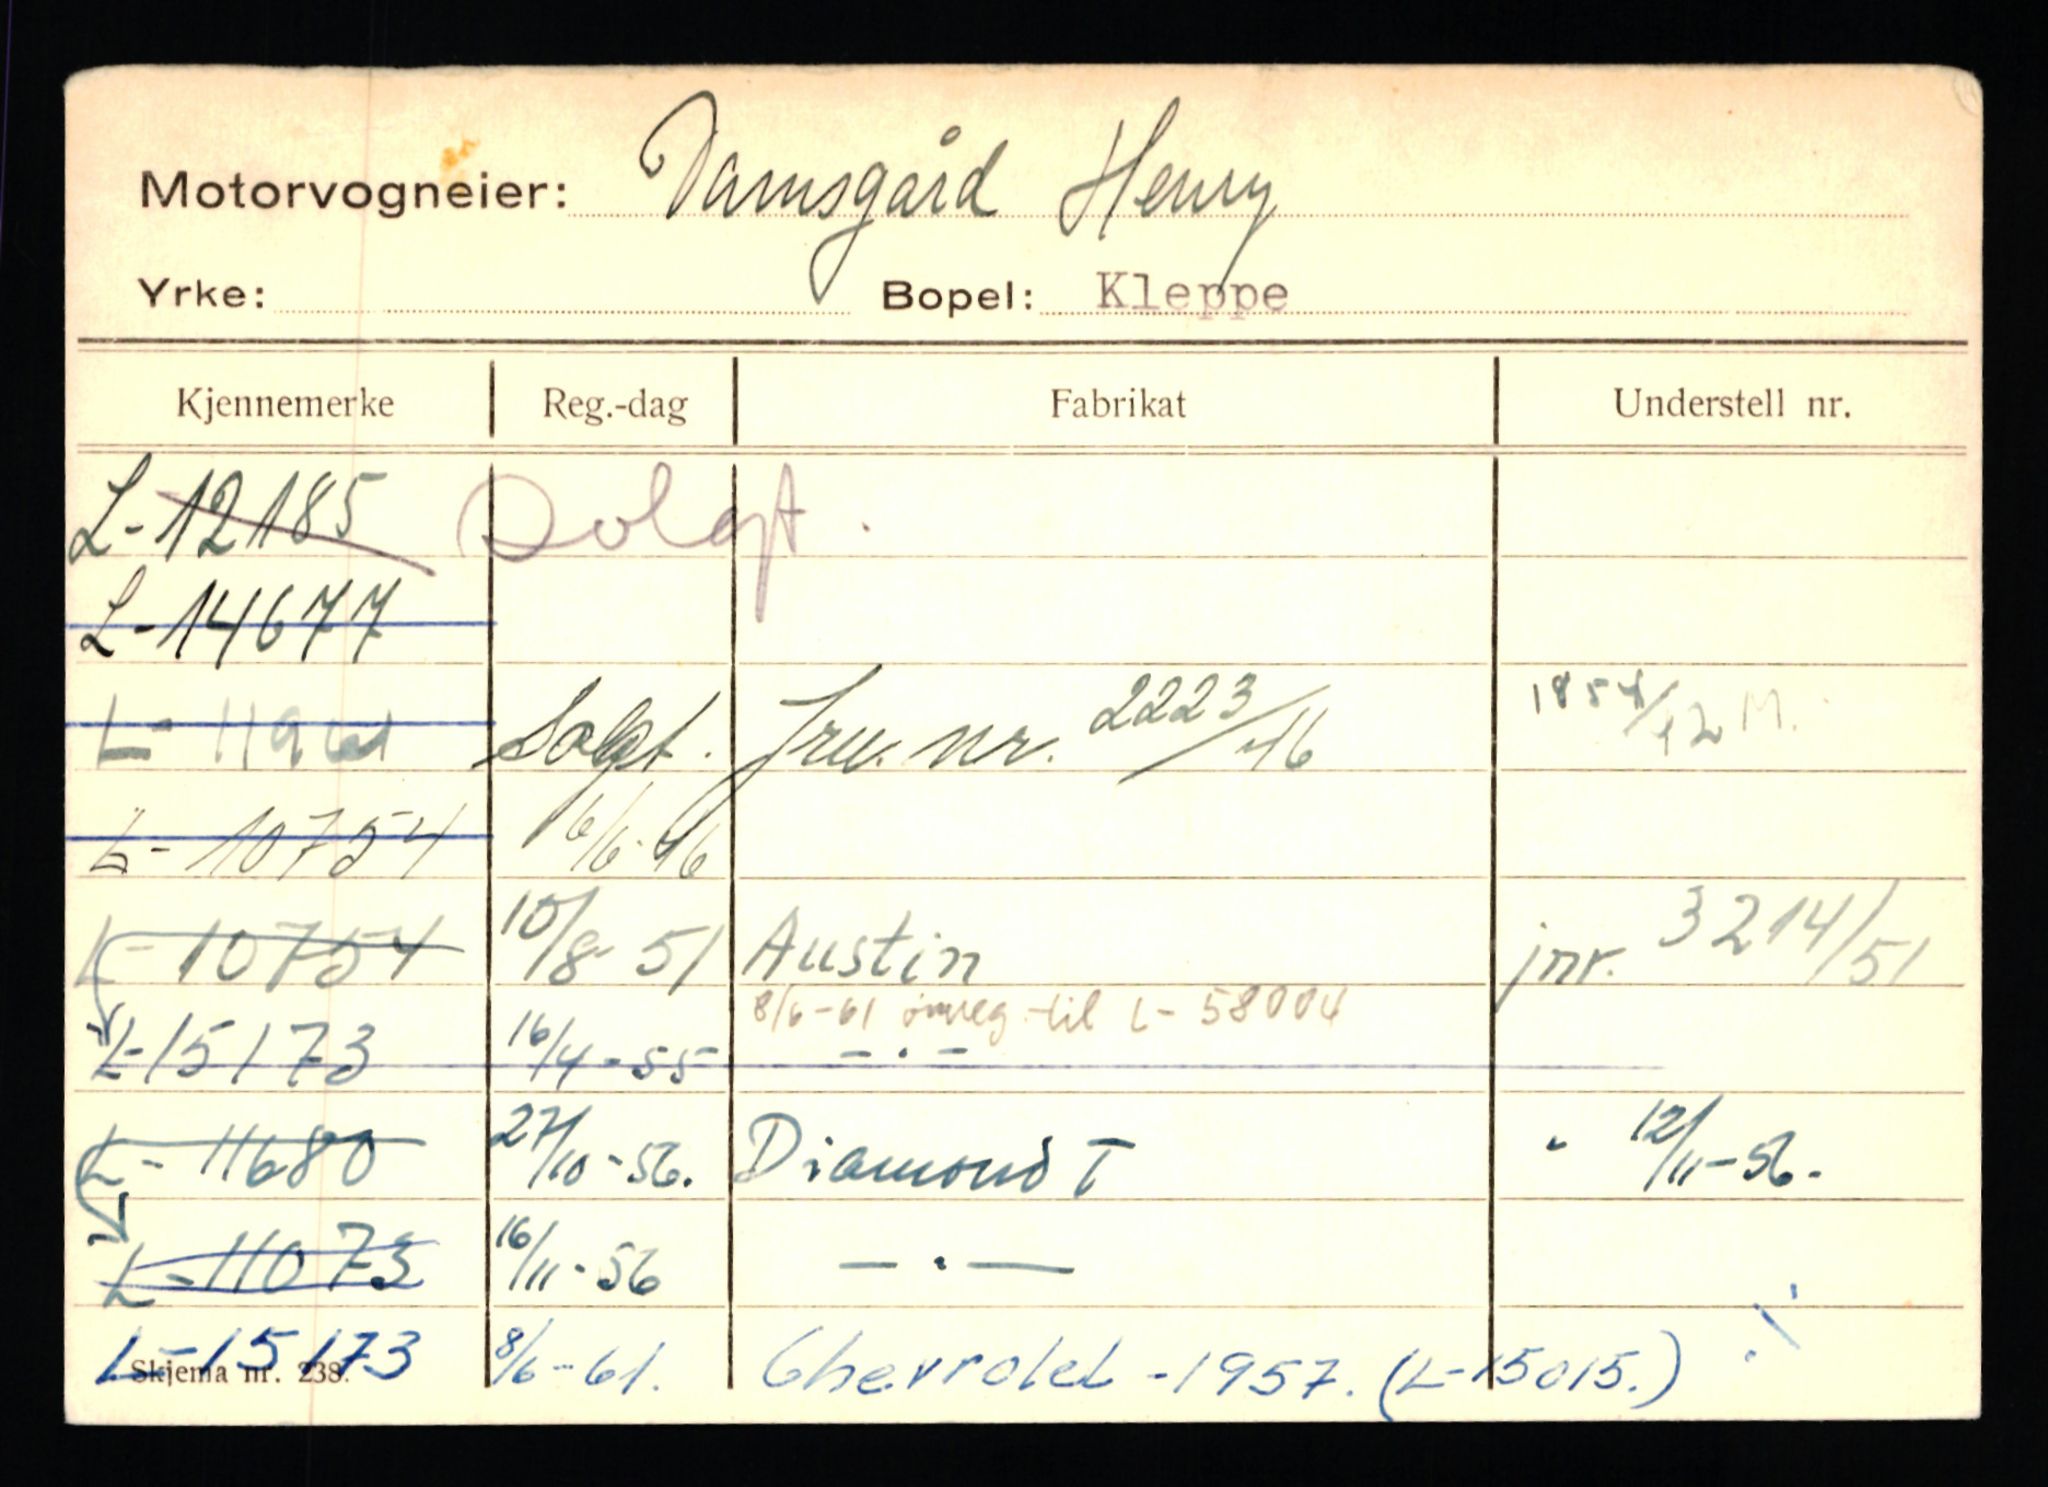 Motorvogneier: Damsgård Henry
Yrke: Bopel: Kleppe
Kjennemerke Reg.-dag Fabrikat Understell nr.
L-12185 Solgt.
L-14677
L- Solgt. Jrn. nr. 2223/46 1854/42 M.
L-10754 16/6-46
L-10754 10/8-51 Austin jnr. 3214/51
8/6-61 omreg. til L-58004
L-15173 16/4-55 -.-
L-11680 27/10-56. Diamond T " 12/11-56.
L-11073 16/11-56 -.-
L-15173 8/6-61. Chevrolet -1957. (L-15015.)
Skjema nr. 238.